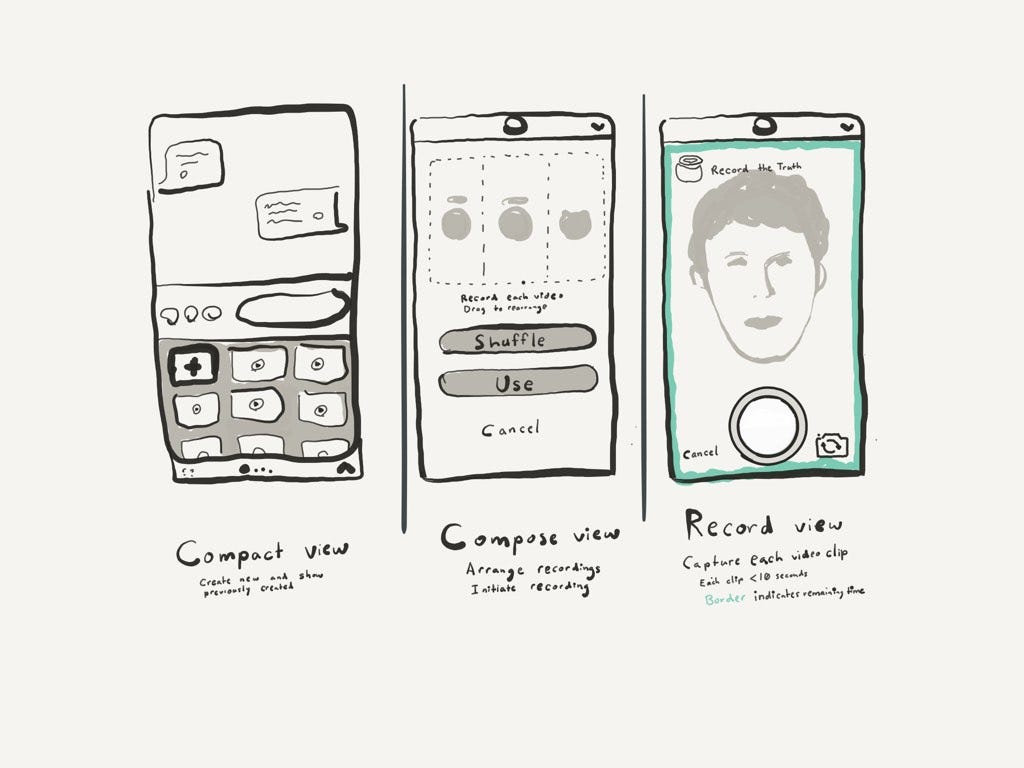 Record each video
Drag to rearrange
Shuffle
Use
Cancel
Record the Truth
Cancel
Compact view
Create new and show
previously created
Compose view
Arrange recordings
Initiate recording
Record view
Capture each video clip
Each clip <10 seconds
Border indicates remaining time